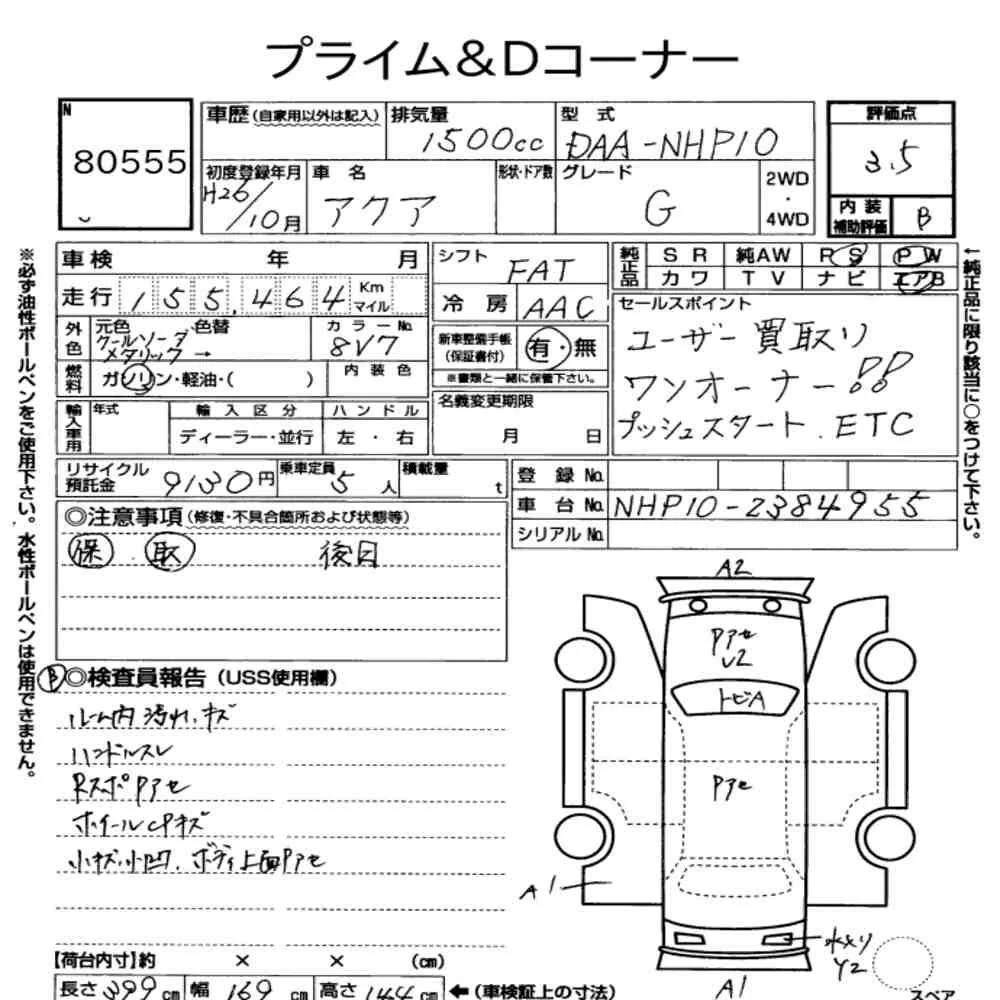 プライム&Dコーナー
N
80555
車歴(自家用以外は記入)
排気量
1500cc
型式
DAA-NHP10
評価点
3.5
初度登録年月
H26/10月
車名
アクア
形状・ドア数
グレード
G
2WD
・
4WD
内装
補助評価
B
車検 年 月
走行 155,464 Km
マイル
外色
元色 色替
クールソーダ
メタリック →
カラーNo.
8V7
燃料
ガソリン・軽油・( )
内装色
輸入車用
年式
輸入区分
ハンドル
ディーラー・並行
左・右
シフト
FAT
冷房
AAC
新車整備手帳
(保証書付)
有・無
※書類と一緒に保管下さい。
名義変更期限
月 日
純正品
SR 純AW PS PW
カワ TV ナビ エアB
セールスポイント
ユーザー買取り
ワンオーナー!!
プッシュスタート.ETC
リサイクル
預託金
9130円
乗車定員
5人
積載量
t
登録No.
車台No.
NHP10-2384955
シリアルNo.
◎注意事項(修復・不具合箇所および状態等)
保.取 後日
B◎検査員報告(USS使用欄)
ルーム内汚れ、キズ
ハンドルスレ
RスポPアセ
ホイールCPキズ
小キズ小凹.ボディ上面Pアセ
A2
Pアセ
U2
トビA
Pアセ
A1
水入り
Y2
A1
スペア
【荷台内寸】約 × × (cm)
長さ399cm 幅169cm 高さ144cm ←(車検証上の寸法)
※必ず油性ボールペンをご使用下さい。水性ボールペンは使用できません。
←純正品に限り該当に○をつけて下さい。